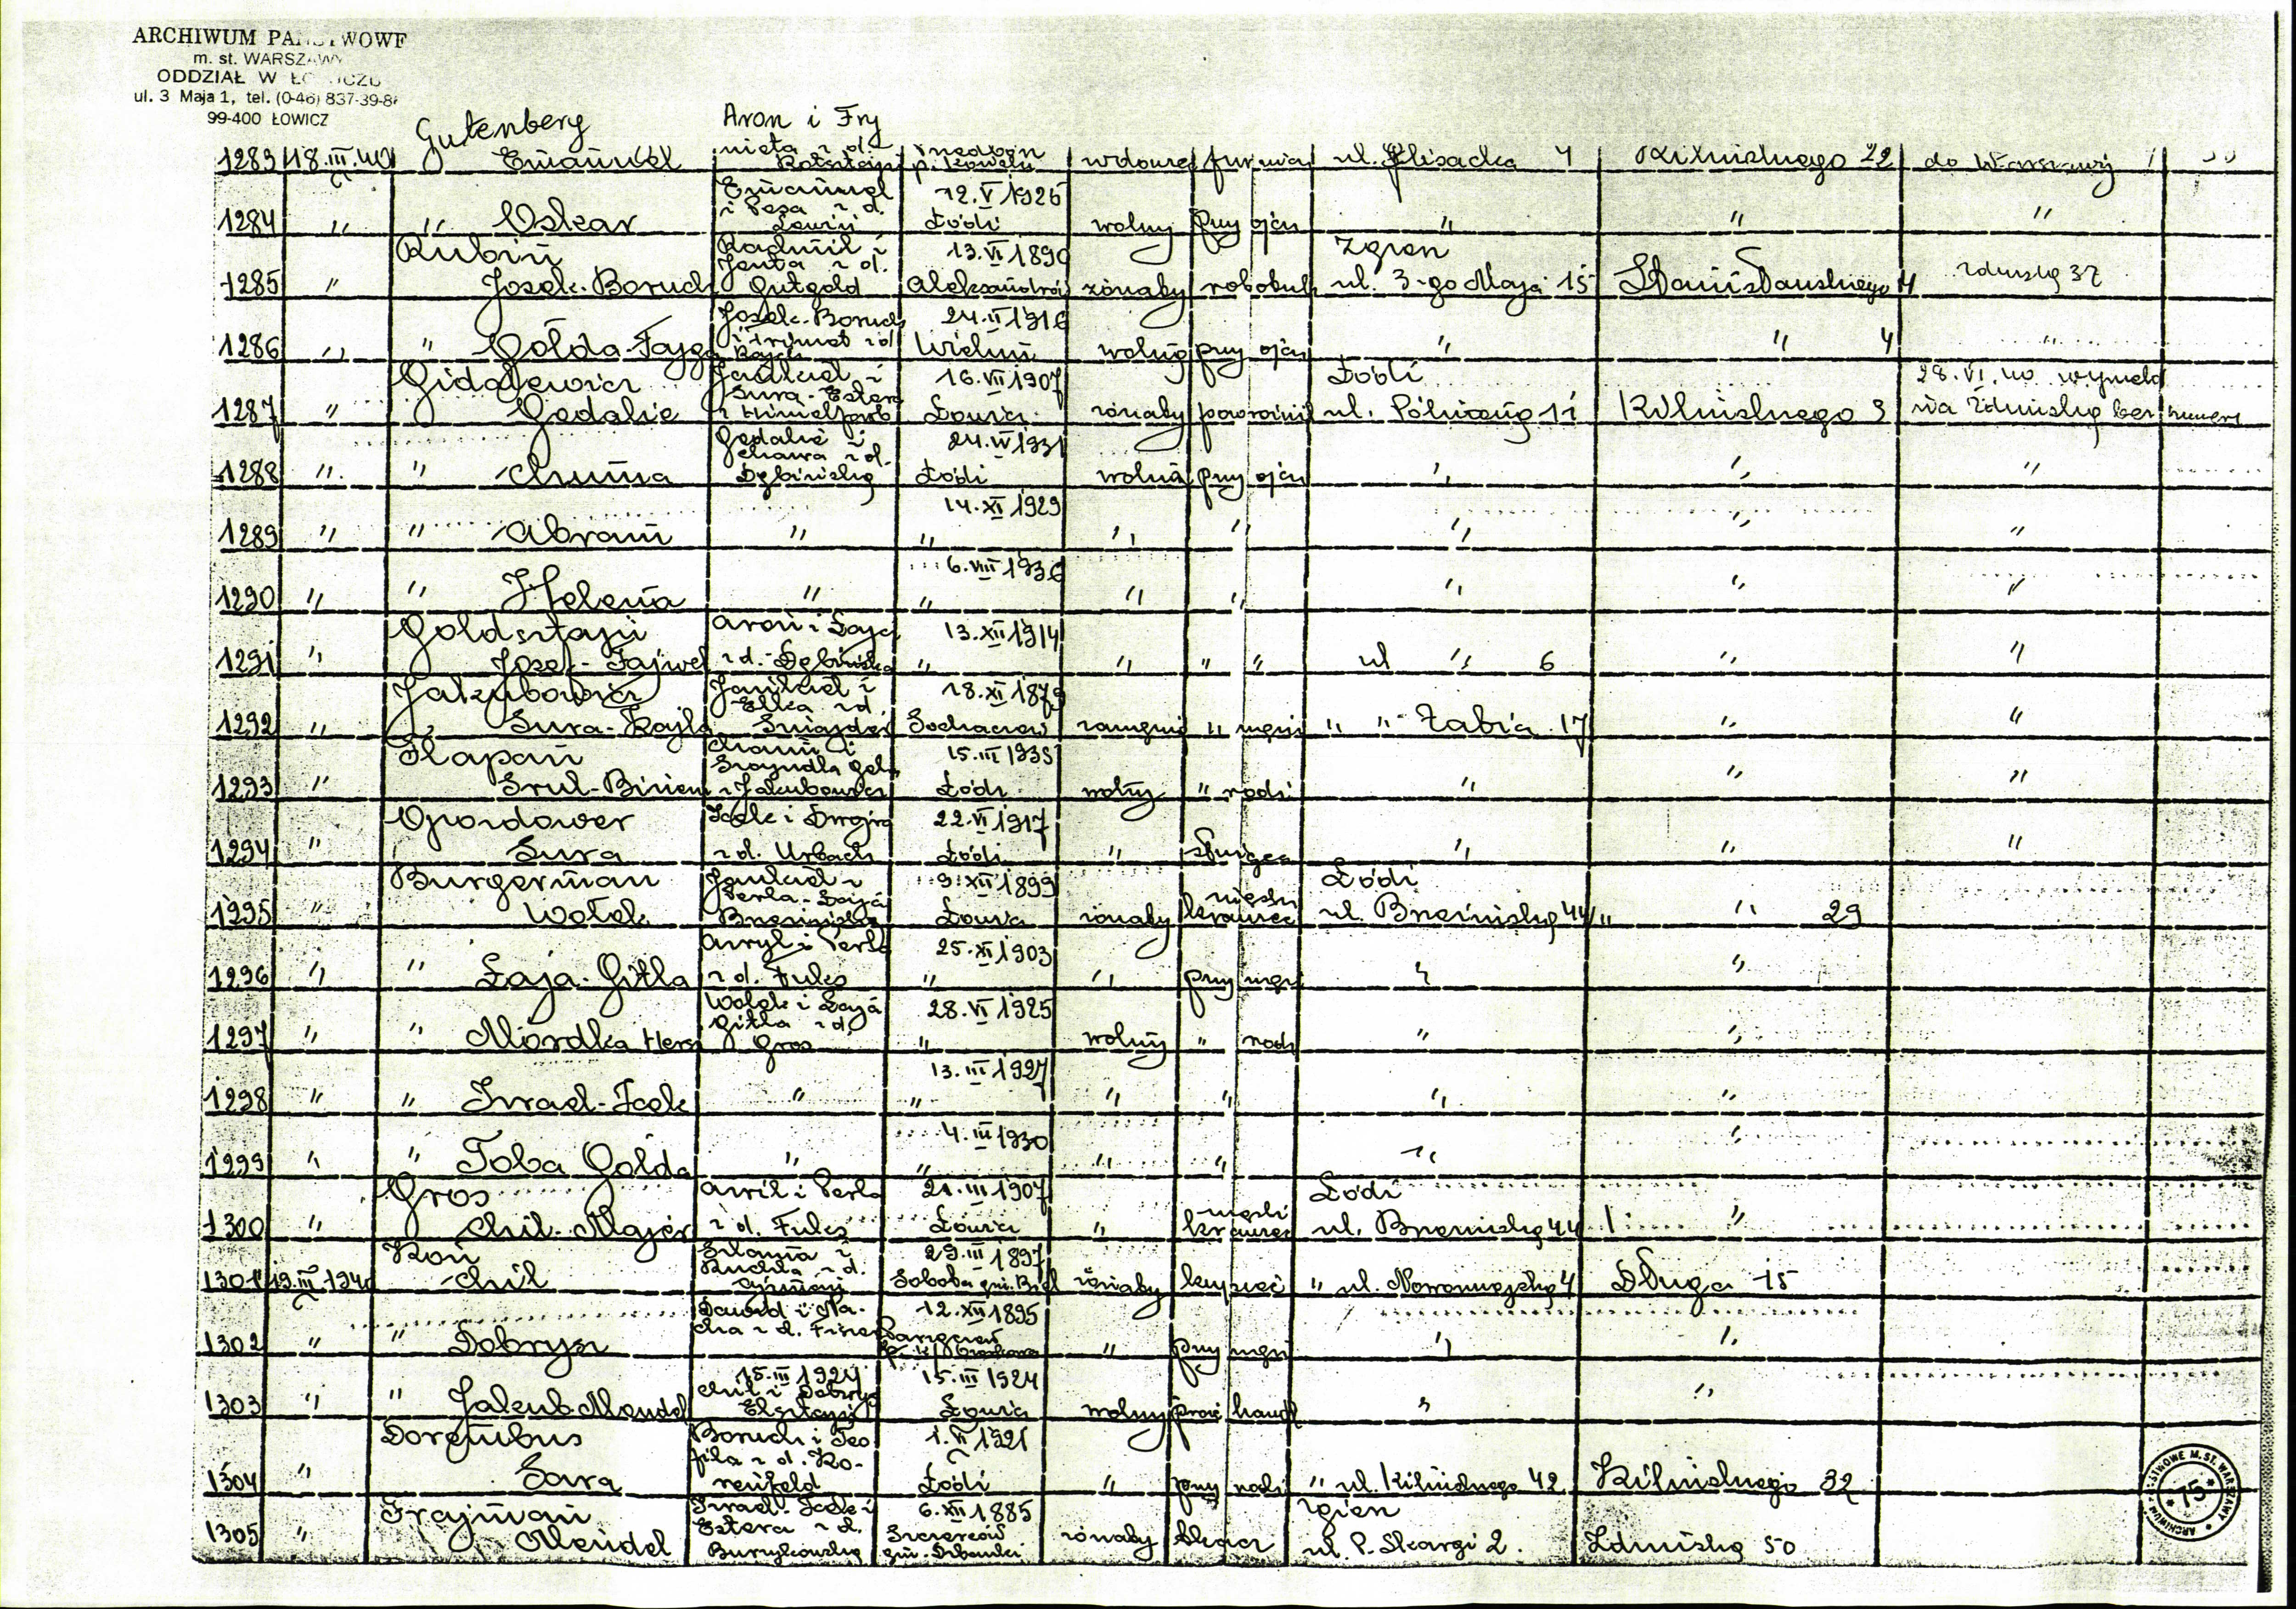 ARCHIWUM PAŃSTWOWE
m. st. WARSZAWY
ODDZIAŁ W ŁOWICZU
ul. 3 Maja 1, tel. (0-46) 837-39-8
99-400 ŁOWICZ
1283 18.III.40 Gutenberg Emanuel Aron i Fry nieta z d. p. Kowelu ul. 4 Kilińskiego 22 do Warszawy
1284 " " Oskar Emanuel i Pesa z d. Lewin 12.V.1926 Łódź wolny przy ojcu " " "
1285 " Rubin Josek-Boruch Jenta z d. Gutgold 13.VI 1890 Aleksandrów żonaty robotnik Zgierz ul. 3-go Maja 15 Stanisławskiego 4 Zduńska 37
1286 " " Gołda-Fajga Josek-Boruch i z d. 24.II 1916 Wieluń wolny przy ojcu " " 4 "
1287 " Gidalewicz Gedalie Jankiel i Sura-Estera z Himelfarb 16.VII 1907 Łowicz żonaty Łódź ul. Północną 11 Kilińskiego 3 28.VI.40 wymeld na Zduńską bez numeru
1288 " " Chuma Gedalie i Chawa z d. Dębińską 24.VI 1931 Łódź wolna przy ojcu " " "
1289 " " Abram " 14.XI 1929 " " " " " "
1290 " " Helena " 6.VIII 1936 " " " " " "
1291 " Goldsztajn Josek-Fajwel Aron i Łaja z d. Dębińska 13.XII 1914 " " " " ul " 6 " "
1292 " Jakubowicz Sura-Rajla Jankiel i Elka z d. 18.XI 1879 Sochaczew zamężna " męzu " " Żabia 17 " "
1293 " Płapan Srul-Binem Chaim i z Jakubowicz 15.III 1935 Łódź wolny " rodz " " "
1294 " Sura Icek i Dwojra z d. Urbach 22.VI 1917 Łódź " " " "
1295 " Burgerman Wolek Jankiel i Perla-Łaja 9.XII 1899 Łowicz żonaty męski krawiec Łódź ul. Brzezińską 44 " " 29
1296 " " Łaja-Gitla Awryl i Perla z d. Fuks 25.XI 1903 " " przy męzu " "
1297 " " Mordka Hersz Wolek i Łaja Gitla z d. Gros 28.VI 1925 " wolny " rodz " "
1298 " " Israel-Icek " 13.III 1927 " " " " "
1299 " " Toba Golda " 4.III 1930 " " " " "
1300 " Gros Chil-Majer Awril i Perla z d. Fuks 21.III 1907 Łowicz " męski krawiec Łódź ul. Brzezińską 44 "
1301 19.III 1940 Kon Chil Szlama i Ruchla z d. 29.III 1897 Sobota gm. Biel żonaty kupiec " ul. Nowomiejską 4 Długa 15
1302 " " Dobrysz Dawid i Na- cha z d. 12.XII 1895 " przy męzu " "
1303 " " Jakub-Mendel 15.III 1924 Chil i Dobrysz Elsztajn 15.III 1924 Łowicz wolny prac handl " "
1304 " Dorembus Sara Boruch i Teo fila z d. Ko- renfeld 1.II 1921 Łódź " przy rodz " ul. Kilińskiego 42 Kilińskiego 32
1305 " Frajman Mendel Israel-Icek i Estera z d. 6.XII 1885 żonaty Zgierz ul. P. Skargi 2. Zduńską 50
75